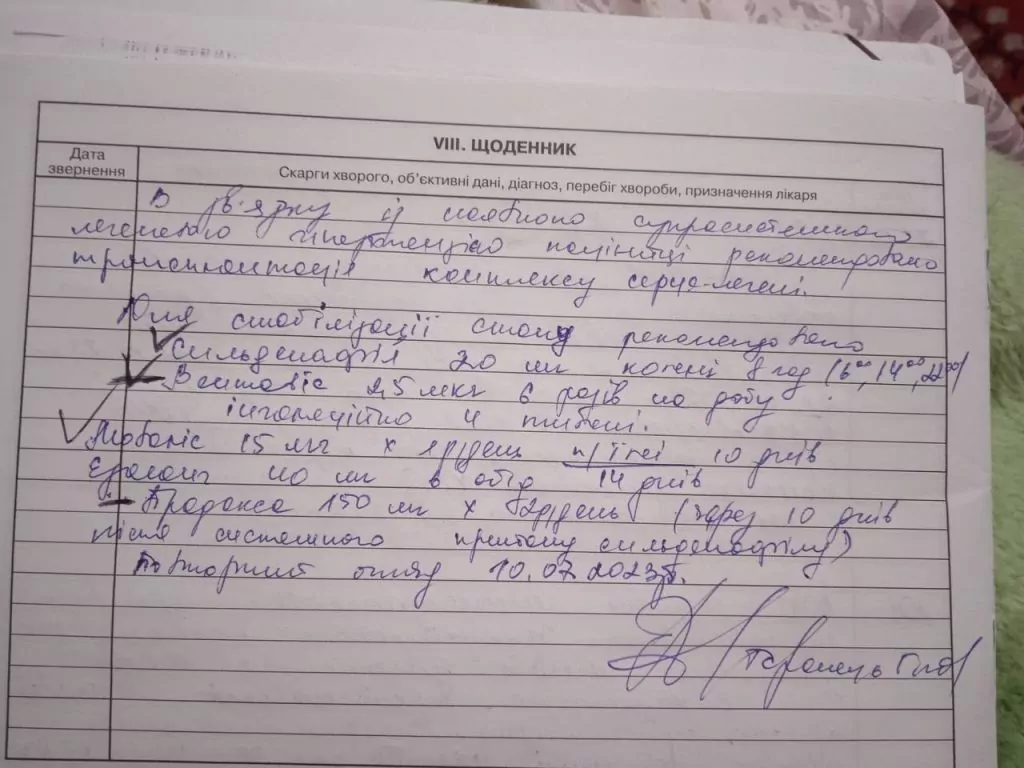 VIII. ЩОДЕННИК
Дата звернення
Скарги хворого, об'єктивні дані, діагноз, перебіг хвороби, призначення лікаря
В зв'язку із наявною супрасистемною
легеневою гіпертензією пацієнтці рекомендовано
трансплантація комплексу серце-легені.
Для стабілізації стану рекомендовано
Сильденафіл 20 мг кожні 8 год (6⁰⁰, 14⁰⁰, 22⁰⁰)
Вентавіс 2,5 мкг 6 разів на добу
інгаляційно
15 мг х п/їжі 10 днів
40 мг в обід 14 днів
Прадакса 150 мг х 2р/день (через 10 днів
після системного прийому сильденафілу)
Повторний огляд 10.07.2023р.